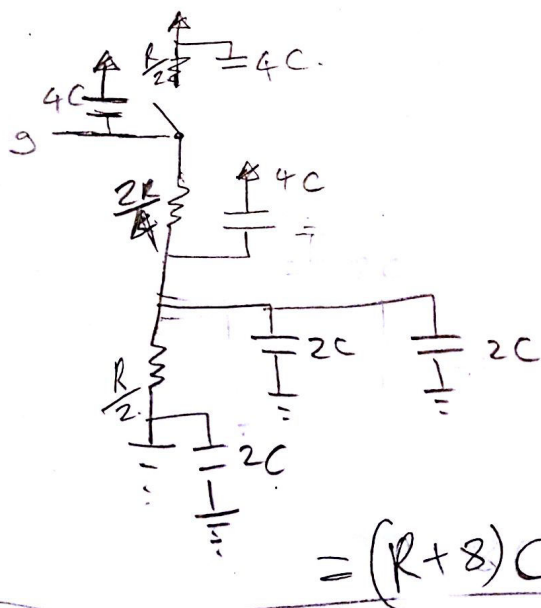 R/2
4C.
4C
g
2R/4
4C
2C
2C
R/2
2C
=(R+8)C